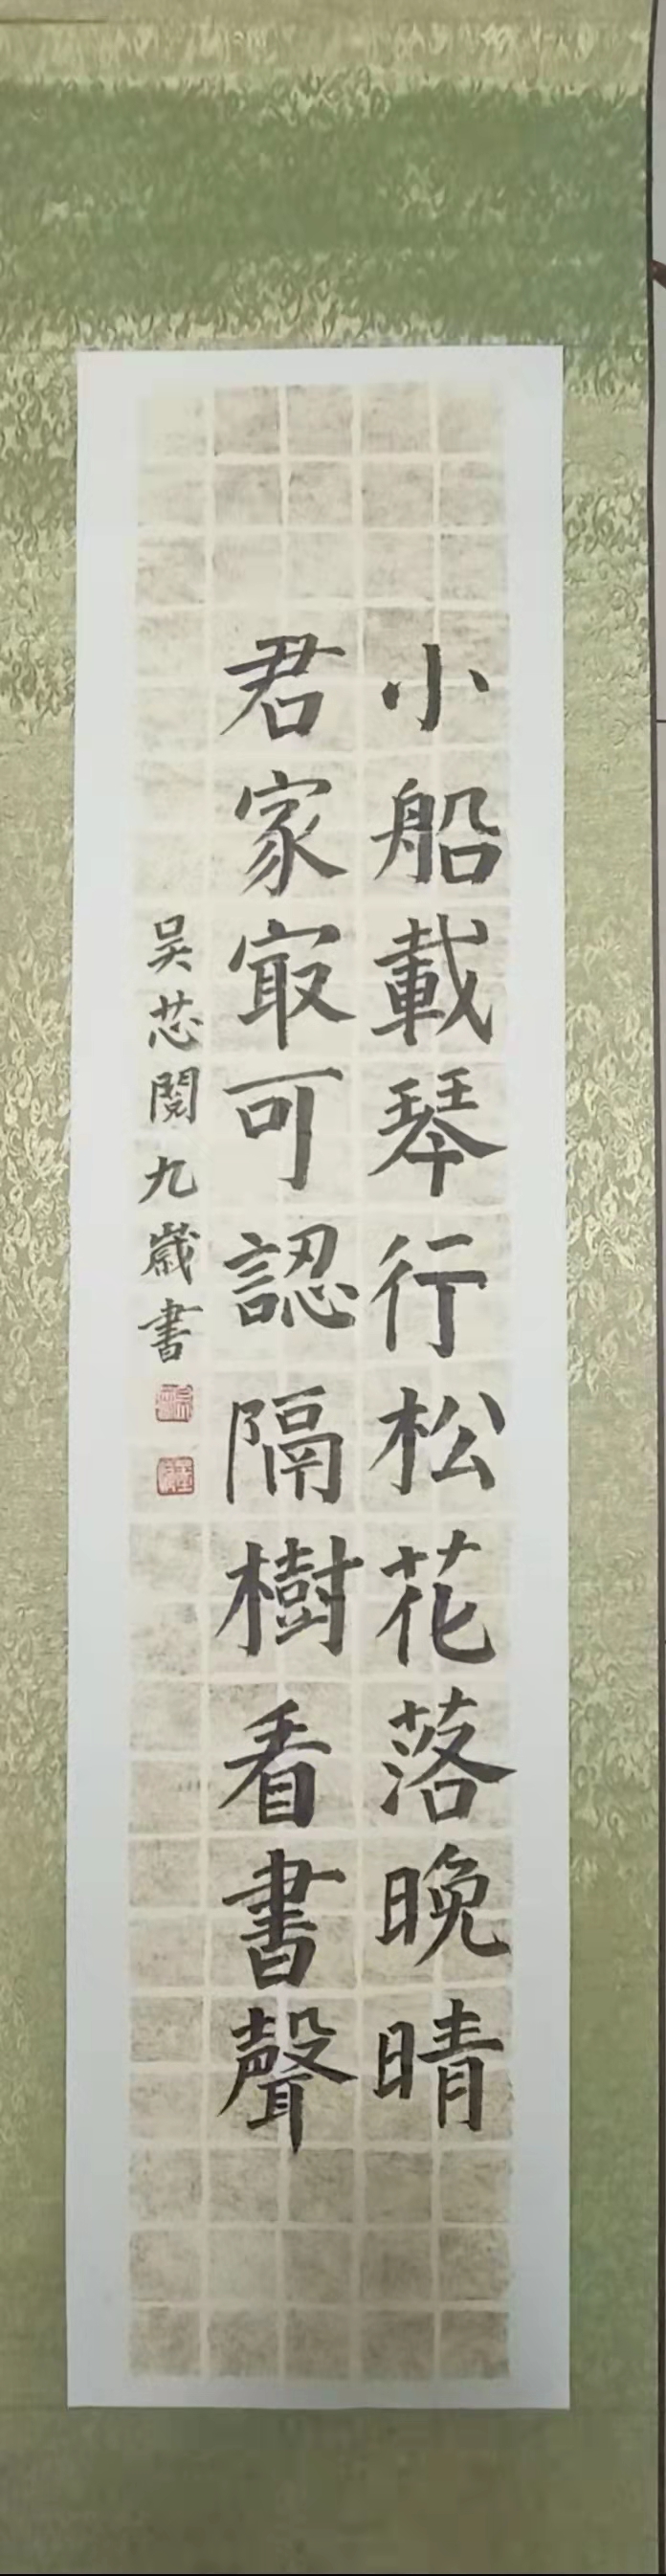 小船載琴行松花落晚晴
君家冣可認隔樹看書聲
吴芯閱九歲書